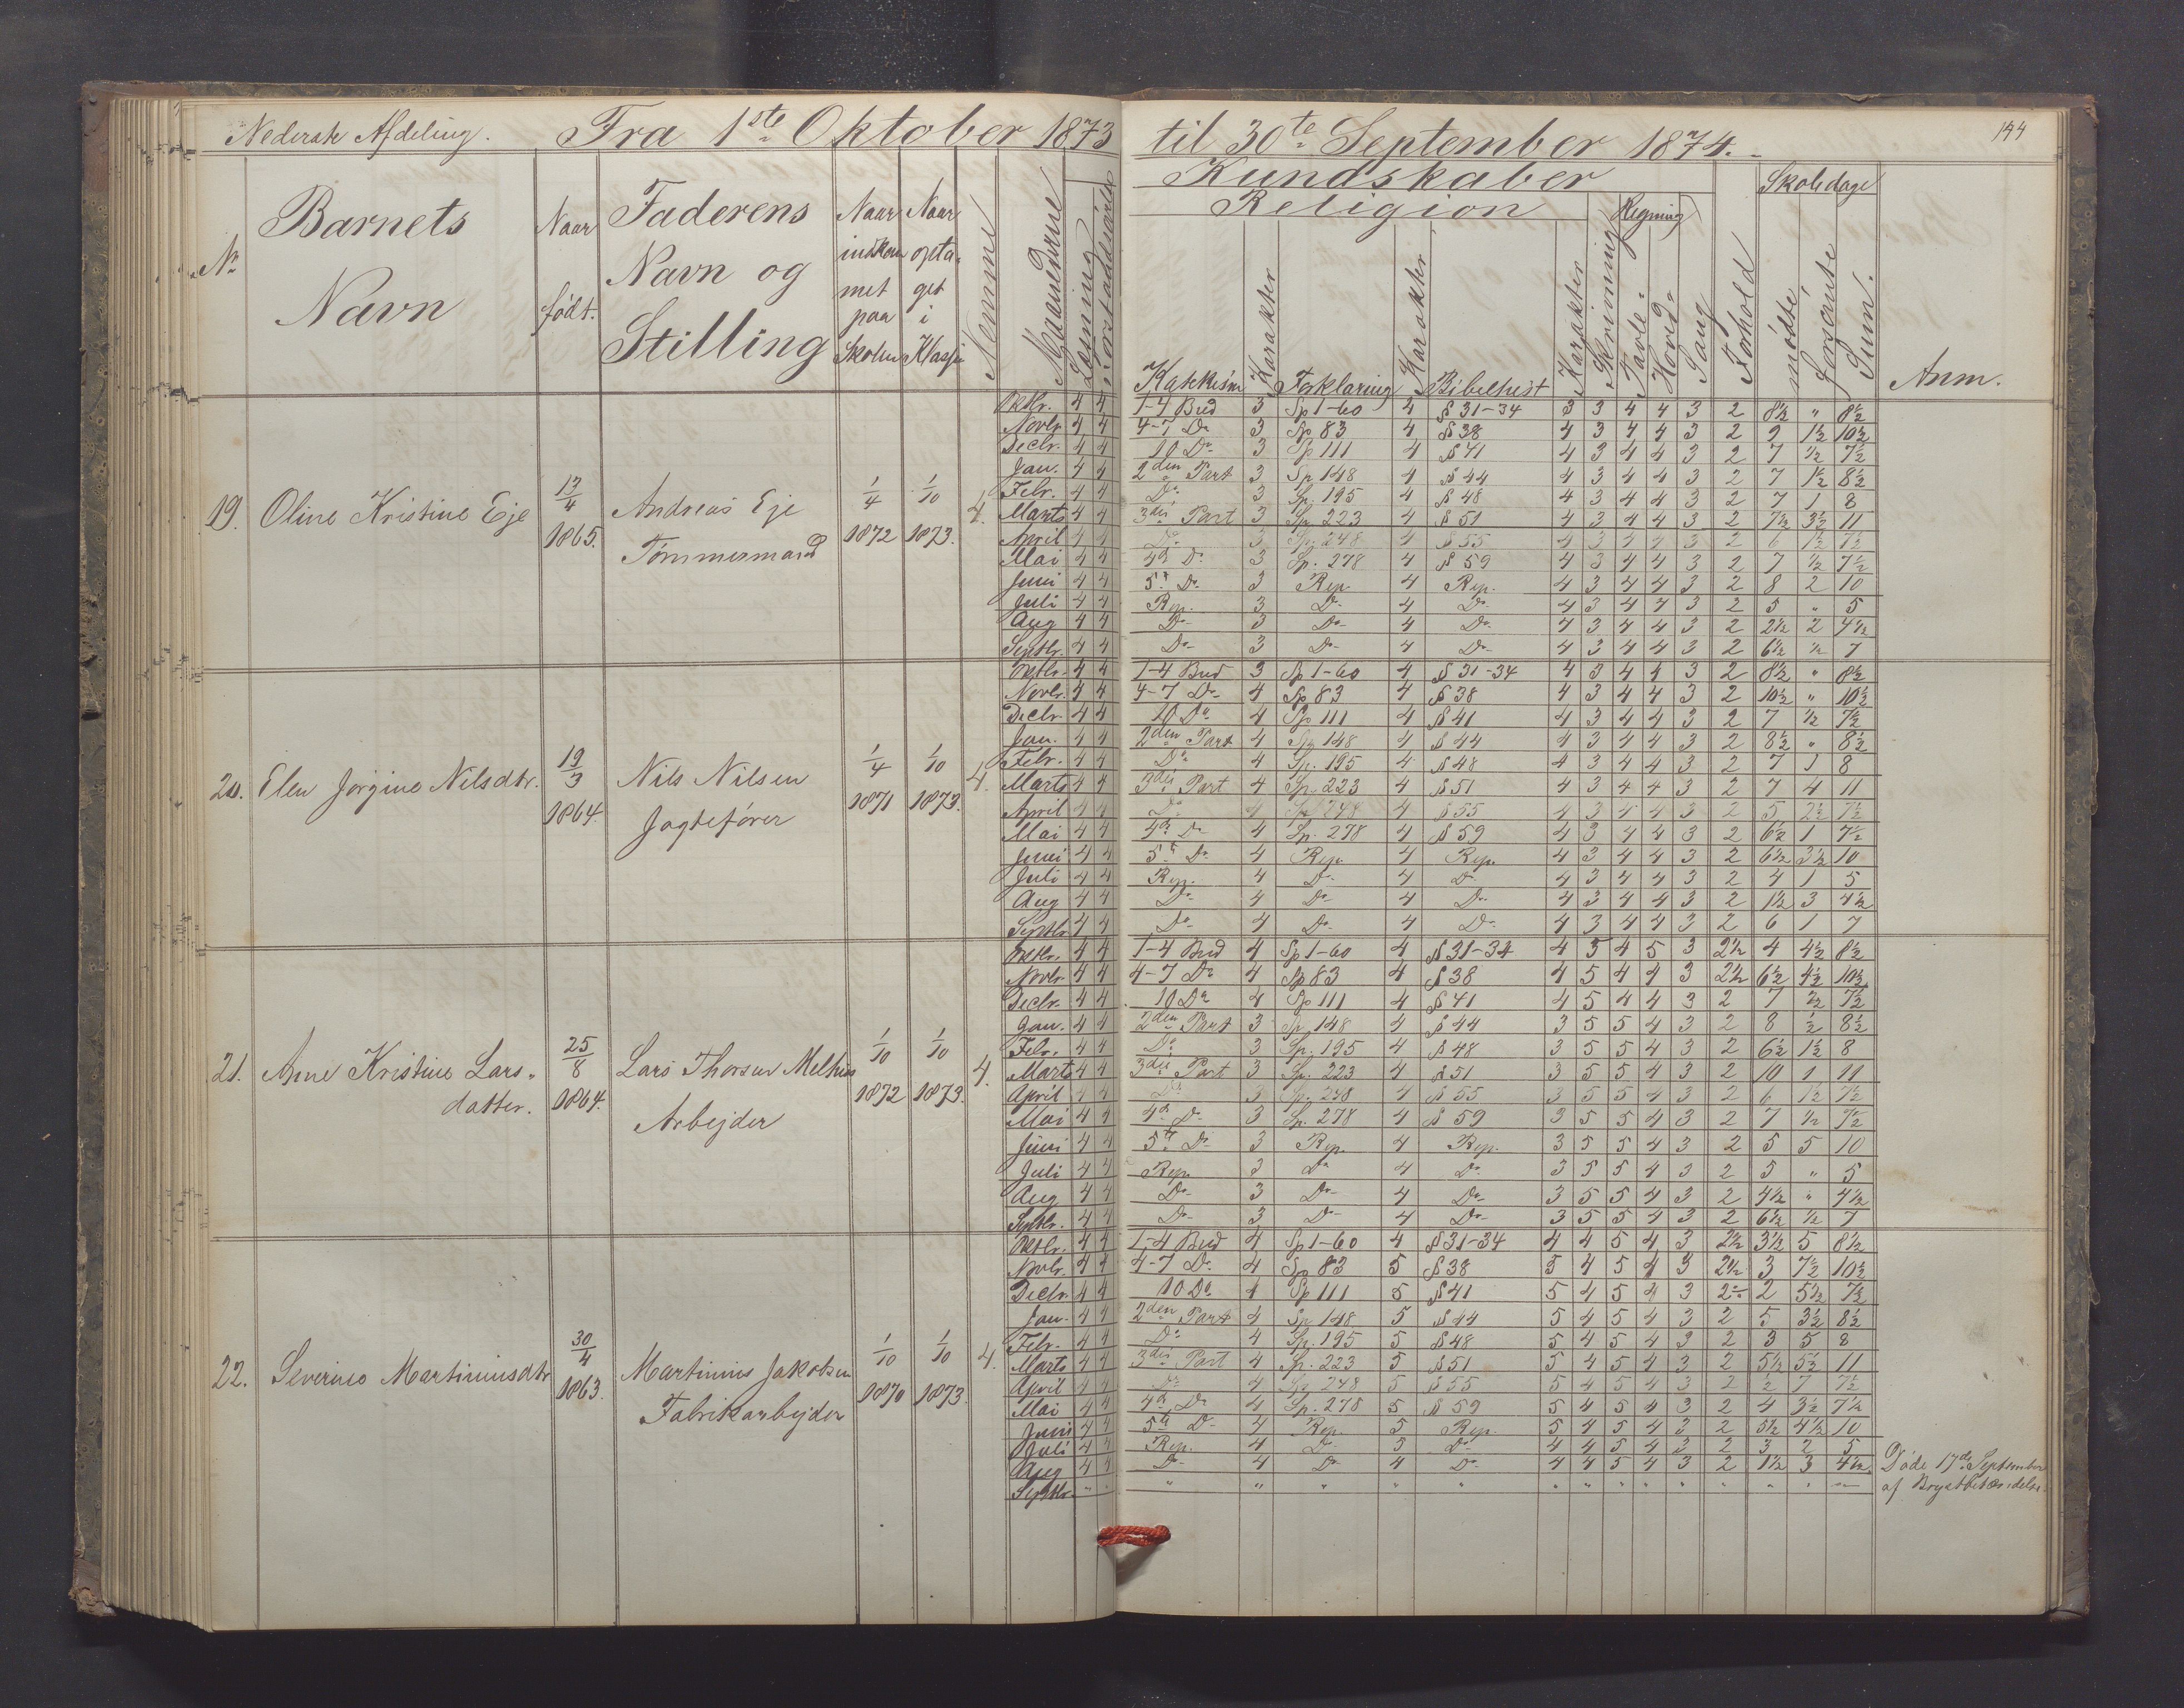 Nederste Afdeling. Fra 1ste Oktober 1873 til 30te September 1874. 144
Kundskaber Skoledage
Religion Regning
No Barnets Navn Naar født. Faderens Navn og Stilling Naar indkommet paa Skolen Naar optaget i Klassen Nemme Maanederne Læsning Forstadværelse Katekism Karakter Forklaring Karakter Bibelhist Karakter Skrivning Tavle- Hoved- Sang Forhold mødte forsømte Sum. Anm.
19. Oline Kristine Eje 17/4 1865. Andreas Eje Tømmermand 1/4 1872 1/10 1873. 4.
Oktbr. 4 4 1-4 Bud 3 Sp 1-60 4 § 31-34 3 3 4 4 3 2 8½ " 8½
Novbr. 4 4 4-7 Do 3 Sp 83 4 § 38 4 3 4 4 3 2 9 1½ 10½
Decbr. 4 4 10 Do 3 Sp 111 4 § 41 4 3 4 4 3 2 7 ½ 7½
Jan. 4 4 2den Part 3 Sp. 148 4 § 44 4 3 4 4 3 2 7 1½ 8½
Febr. 4 4 Do 3 Sp. 195 4 § 48 4 3 4 4 3 2 7 1 8
Marts 4 4 3die Part 3 Sp. 223 4 § 51 4 3 4 4 3 2 7½ 3½ 11
April 4 4 Do 3 Sp. 248 4 § 55 4 3 4 4 3 2 6 1½ 7½
Mai 4 4 4de Do 3 Sp. 278 4 § 59 4 3 4 4 3 2 7 ½ 7½
Juni 4 4 5te Do 3 Rep 4 Rep. 4 3 4 4 3 2 8 2 10
Juli 4 4 Rep. 3 Do 4 Do 4 3 4 4 3 2 5 " 5
Aug 4 4 Do 3 Do 4 Do 4 3 4 4 3 2 2½ 2 4½
Septbr. 4 4 Do 3 Do 4 Do 4 3 4 4 3 2 6½ ½ 7
20. Elen Jørgine Nilsdtr. 19/3 1864. Nils Nilsen Jagtefører 1/4 1871 1/10 1873. 4.
Oktbr. 4 4 1-4 Bud 3 Sp 1-60 4 § 31-34 4 3 4 4 3 2 8½ " 8½
Novbr. 4 4 4-7 Do 4 Sp 83 4 § 38 4 3 4 4 3 2 10½ " 10½
Decbr. 4 4 10 Do 4 Sp 111 4 § 41 4 3 4 4 3 2 7 ½ 7½
Jan. 4 4 2den Part 4 Sp 148 4 § 44 4 3 4 4 3 2 8½ " 8½
Febr. 4 4 Do 4 Sp. 195 4 § 48 4 3 4 4 3 2 7 1 8
Marts 4 4 3die Part 4 Sp. 223 4 § 51 4 3 4 4 3 2 7 4 11
April 4 4 Do 4 Sp. 248 4 § 55 4 3 4 4 3 2 5 2½ 7½
Mai 4 4 4de Do 4 Sp. 278 4 § 59 4 3 4 4 3 2 6½ 1 7½
Juni 4 4 5te Do 4 Rep. 4 Rep. 4 3 4 4 3 2 6½ 3½ 10
Juli 4 4 Rep. 4 Do 4 Do 4 3 4 4 3 2 4 1 5
Aug 4 4 Do 4 Do 4 Do 4 3 4 4 3 2 1½ 3 4½
Septbr 4 4 Do 4 Do 4 Do 4 3 4 4 3 2 6 1 7
21. Anne Kristine Larsdatter. 25/8 1864. Lars Thorsen Melhus Arbejder 1/10 1872 1/10 1873. 4.
Oktbr. 4 4 1-4 Bud 4 Sp 1-60 4 § 31-34 4 5 4 5 3 2½ 4 4½ 8½
Novbr 4 4 4-7 Do 4 Sp 83 4 § 38 4 5 4 4 3 2½ 6½ 4½ 10½
Decbr. 4 4 10 Do 4 Sp 111 4 § 41 4 5 4 4 3 2 7 ½ 7½
Jan. 4 4 2den Part 3 Sp 148 4 § 44 3 5 5 4 3 2 8 ½ 8½
Febr. 4 4 Do 3 Sp. 195 4 § 48 3 5 5 4 3 2 6½ 1½ 8
Marts 4 4 3die Part 3 Sp. 223 4 § 51 3 5 5 4 3 2 10 1 11
April 4 4 Do 3 Sp. 248 4 § 55 3 5 5 4 3 2 6 1½ 7½
Mai 4 4 4de Do 3 Sp. 278 4 § 59 3 5 5 4 3 2 7 ½ 7½
Juni 4 4 5te Do 3 Rep. 4 Rep. 3 5 5 4 3 2 5 5 10
Juli 4 4 Rep. 3 Do 4 Do 3 5 5 4 3 2 5 " 5
Aug 4 4 Do 3 Do 4 Do 3 5 5 4 3 2 4½ " 4½
Septbr. 4 4 Do 3 Do 4 Do 3 5 5 4 3 2 6½ ½ 7
22. Severine Martiniusdtr 30/4 1863. Martinius Jakobsen Fabrikarbejder 1/10 1870 1/10 1873. 4.
Oktbr. 4 4 1-4 Bud 4 Sp 1-60 4 § 31-34 4 4 5 4 3 2½ 3½ 5 8½
Novbr. 4 4 4-7 Do 4 Sp 83 5 § 38 5 4 5 4 3 2½ 3 7½ 10½
Decbr. 4 4 10 Do 4 Sp 111 5 § 41 5 4 5 4 3 2 2 5½ 7½
Jan. 4 4 2den Part 4 Sp 148 5 § 44 5 4 5 4 3 2 5 3½ 8½
Febr. 4 4 Do 4 Sp. 195 5 § 48 5 4 5 4 3 2 3 5 8
Marts 4 4 3die Part 4 Sp. 223 5 § 51 5 4 5 4 3 2 5½ 5½ 11
April 4 4 Do 4 Sp. 248 5 § 55 5 4 5 4 3 2 ½ 7 7½
Mai 4 4 4de Do 4 Sp. 278 5 § 59 5 4 5 4 3 2 4 3½ 7½
Juni 4 4 5te Do 4 Rep. 5 Rep. 5 4 5 4 3 2 5½ 4½ 10
Juli 4 4 Rep. 4 Do 5 Do 4 4 5 4 3 2 3 2 5
Aug 4 4 Do 4 Do 4 Do 4 4 5 4 3 2 1½ 3 4½ Døde 17de September
Septbr. " " " " " " " " " " " " " " " " — af Brystbetændelse.